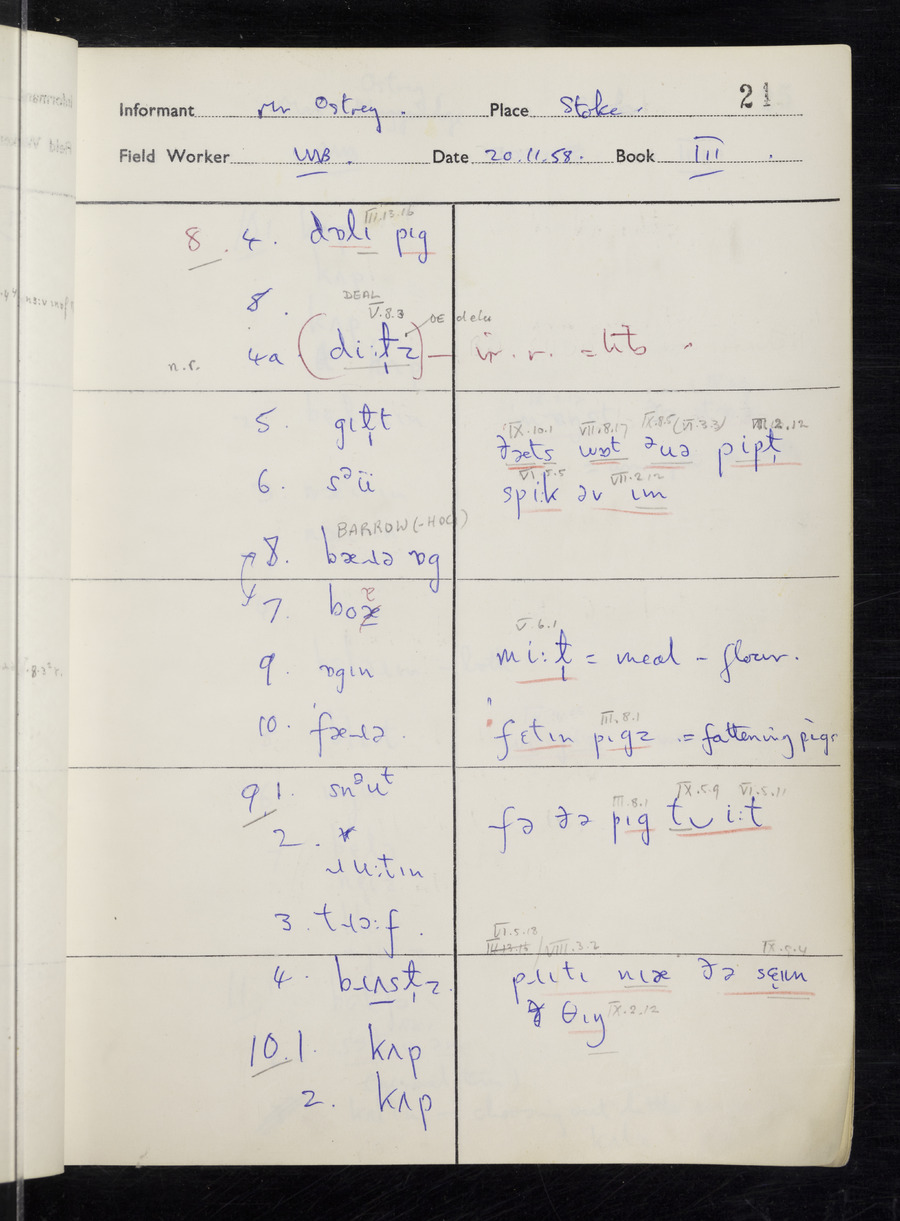 21
Informant Mr Ostrey. Place Stoke.
Field Worker WB. Date 20.11.58. Book III.
III.13.16
8. 4. dɒlɪ pɪg
8.
DEAL
V.8.3
OE delu
n.r. 4a (di:ɫ̩z) ir. r. =
5. gɪɫ̩t
IX.10.1 VII.8.17 IX.8.5 (VI.3.3) VII.2.12
ðæts wɒt ðə pipɫ̩
6. sᵊü
VI.5.5 VII.2.12
spi:k əv ɪm
BARROW (-HOG)
8. bæɹə ɒg
7. boæ
V.6.1
9. ɒgɪn mi:ɫ̩ = meal - flour.
III.8.1
10. fæɹə. fɛtɪn pɪgz = fattening pigs
9.1. snᵊut
III.8.1 IX.5.9 VI.5.11
fə ðə pɪg t‿i:t
2.
ɹu:tɪn
3. tɹɔ:f.
VI.5.18
/ VIII.3.2 IX.5.4
4. bɹʌsɫ̩z. pɹɪtɪ nɪæ ðə sɛɪm
θɪŋ IX.2.12
10.1. kʌp
2. kʌp